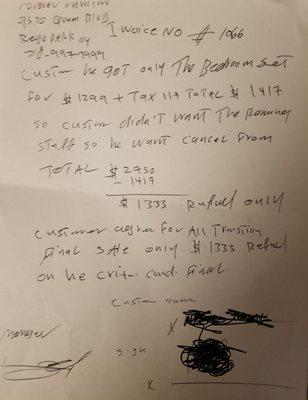 Forever Furniture
9530 Queens Blvd
Rego PARK NY
718-997-7999
Invoice NO # 1066
Custom he got only The Bedroom Set
For $ 1299 + Tax 117 TOTAL $ 1417
so custom didn't want The Roming
staff so he want cancel From
TOTAL $ 2750
- 1417
$ 1333 Refund only
Customer agree For All Transtion
Final Sale only $ 1333 Refund
on he Credit card Final.
Custom name
X
Manager
Sign
X
X